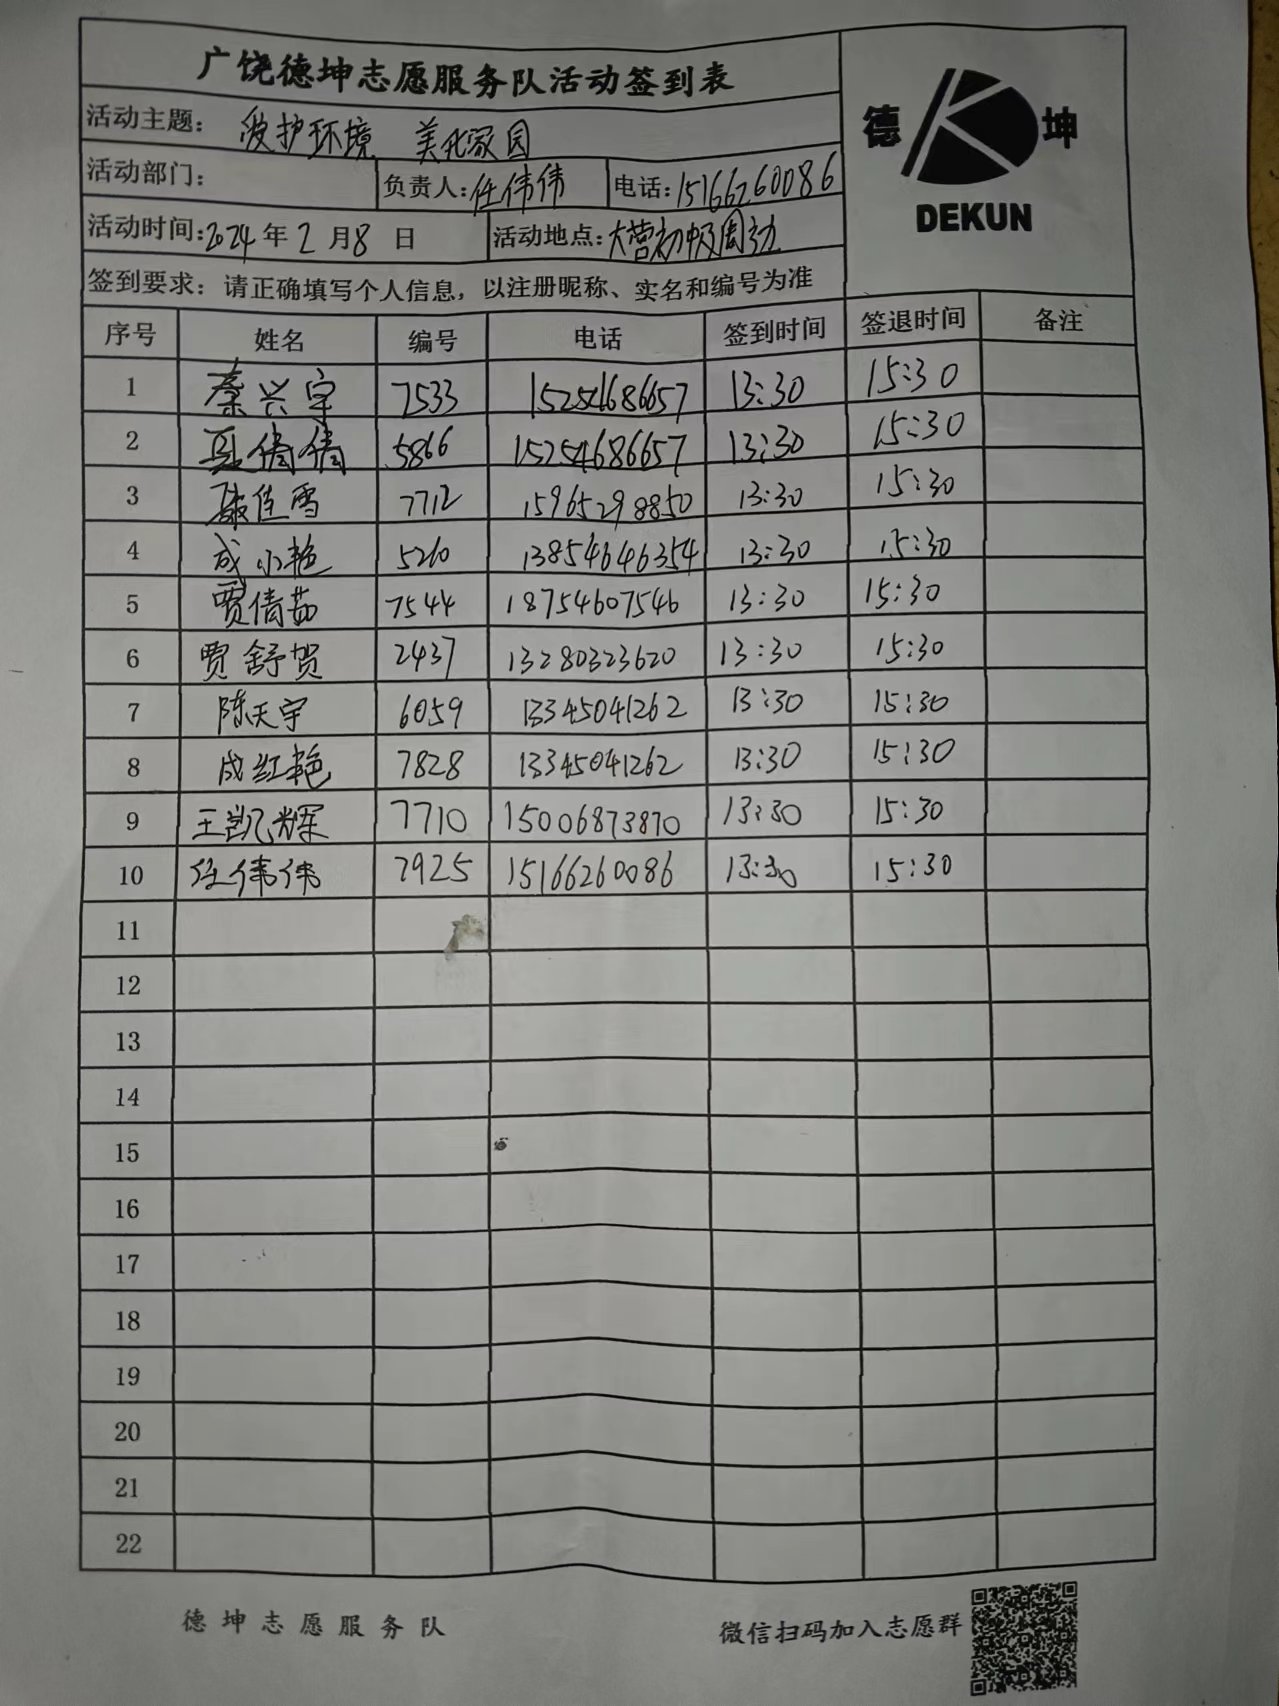 广饶德坤志愿服务队活动签到表
德 坤
DEKUN
活动主题: 爱护环境 美化家园
活动部门: 负责人:任伟伟 电话:15166260086
活动时间:2024年2月8日 活动地点:大营初级周边
签到要求: 请正确填写个人信息, 以注册昵称、实名和编号为准
序号 姓名 编号 电话 签到时间 签退时间 备注
1 秦兴宇 7533 15254686657 13:30 15:30
2 聂倩倩 5866 15254686657 13:30 15:30
3 康佳雪 7712 15965298850 13:30 15:30
4 成小艳 5260 13854646354 13:30 15:30
5 贾倩茹 7544 18754607546 13:30 15:30
6 贾舒贺 2437 13280323620 13:30 15:30
7 陈天宇 6059 13345041262 13:30 15:30
8 成红艳 7828 13345041262 13:30 15:30
9 王凯辉 7710 15006873870 13:30 15:30
10 任伟伟 7925 15166260086 13:30 15:30
11
12
13
14
15
16
17
18
19
20
21
22
德坤志愿服务队 微信扫码加入志愿群